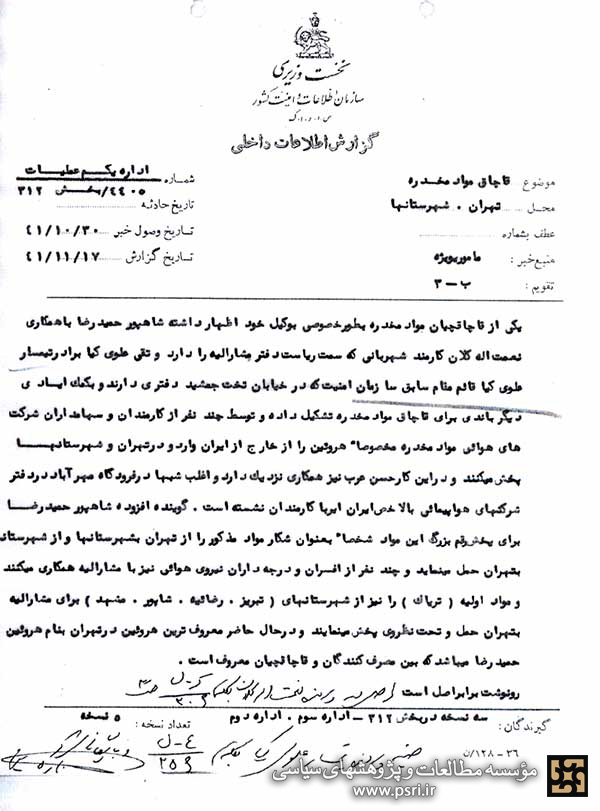 نخست وزیری
سازمان اطلاعات و امنیت کشور
س.ا.و.ا.ک
گزارش اطلاعات داخلی
موضوع قاچاق مواد مخدره
محل تهران . شهرستانها
عطف بشماره
منبع خبر : مامور ویژه
تقویم : ب - ۳
شماره اداره یکم عملیات
۲۴۰۵/بخش ۳۱۲
تاریخ حادثه
تاریخ وصول خبر ۴۱/۱۰/۳۰
تاریخ گزارش ۴۱/۱۱/۱۷
یکی از قاچاقچیان مواد مخدره بطور خصوصی بوکیل خود اظهار داشته شاهپور حمید رضا با همکاری
نعمت اله کلان کارمند شهربانی که سمت ریاست دفتر مشارالیه را دارد و تقی علوی کیا برادر تیمسار
علوی کیا قائم مقام سابق سازمان امنیت که در خیابان تخت جمشید دفتری دارند و بکمک ایادی
دیگر باندی برای قاچاق مواد مخدره تشکیل داده و توسط چند نفر از کارمندان و سهامداران شرکت
های هوائی مواد مخدره مخصوصا" هروئین را از خارج از ایران وارد و در تهران و شهرستانها
پخش میکنند و در این کار حسن عرب نیز همکاری نزدیک دارد و اغلب شبها در فرودگاه مهرآباد در دفتر
شرکتهای هواپیمائی بالاخص ایران ایر با کارمندان نشسته است . گوینده افزوده شاهپور حمید رضا
برای پخش رقم بزرگ این مواد شخصا" بعنوان شکار مواد مذکور را از تهران بشهرستانها و از شهرستان
بتهران حمل مینماید و چند نفر از افسران و درجه داران نیروی هوائی نیز با مشارالیه همکاری میکنند
و مواد اولیه ( تریاک ) را نیز از شهرستانهای ( تبریز . رضائیه . شاپور . مشهد ) برای مشارالیه
بتهران حمل و تحت نظر وی پخش مینمایند و در حال حاضر معروف ترین هروئین در تهران بنام هروئین
حمید رضا میباشد که بین مصرف کنندگان و قاچاقچیان معروف است .
رونوشت برابر اصل است
گیرندگان : سه نسخه در بخش ۳۱۲ - اداره سوم . اداره دوم تعداد نسخه : ۵ نسخه
۳۶ - ۱۲۸/ن
مؤسسه مطالعات و پژوهشهای سیاسی
www.psri.ir